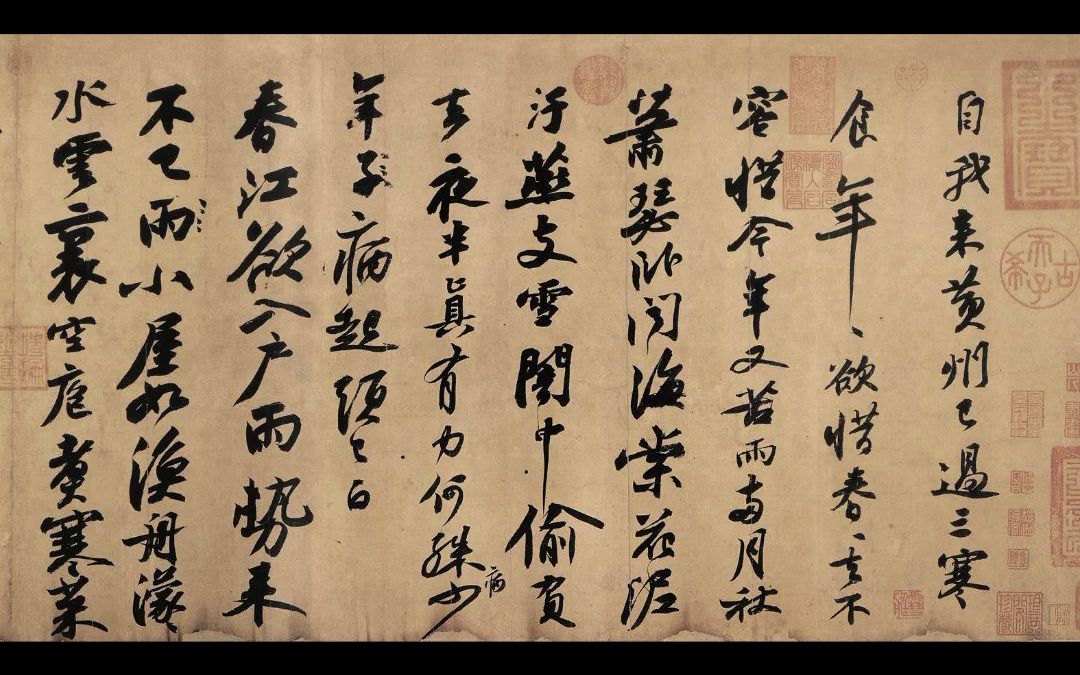 自我來黃州已過三寒
食年、欲惜春、去不
容惜今年又苦雨兩月秋
蕭瑟臥聞海棠花泥
汙燕支雪闇中偷負
去夜半真有力何殊少病
年子病起頭已白
春江欲入戶雨勢來
不已雨小屋如漁舟濛
水雲裏空庖煮寒菜
古希天子